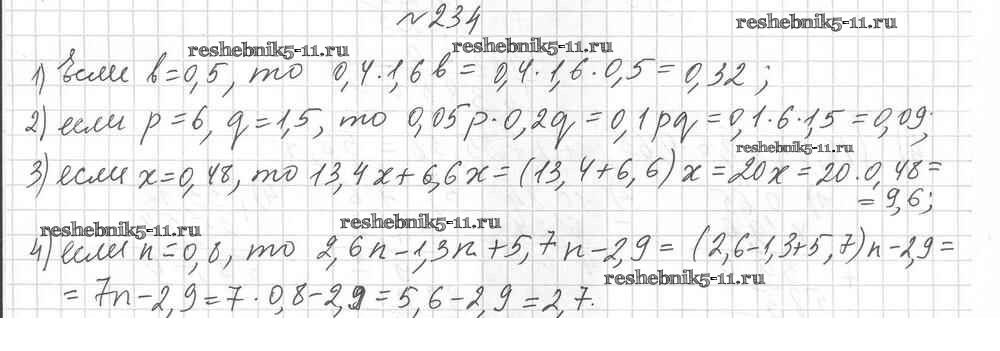 №234
reshebnik5-11.ru
reshebnik5-11.ru reshebnik5-11.ru
1) Если b=0,5, то 0,4·1,6b = 0,4·1,6·0,5 = 0,32;
2) если p=6, q=1,5, то 0,05p·0,2q = 0,1pq = 0,1·6·1,5 = 0,09;
reshebnik5-11.ru
3) если x=0,48, то 13,4x+6,6x = (13,4+6,6)x = 20x = 20·0,48 =
= 9,6;
reshebnik5-11.ru reshebnik5-11.ru
4) если n=0,8, то 2,6n-1,3n+5,7n-2,9 = (2,6-1,3+5,7)n-2,9 =
reshebnik5-11.ru
= 7n-2,9 = 7·0,8-2,9 = 5,6-2,9 = 2,7.